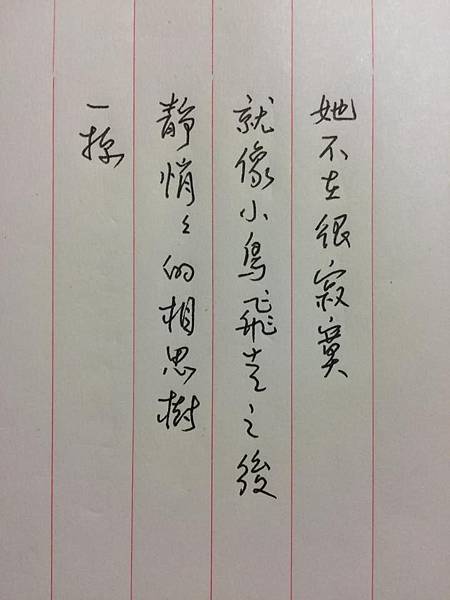 她不在很寂寞
就像小鳥飛走之後
靜悄々的相思樹
一棵